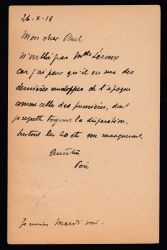 26-X-18
Mon cher Paul
N'oubliez pas Mme Leroux
car j'ai peur qu'il en use des
dernières enveloppes de l'époque
comme celles des premières, dont
je regrette toujours la disparition.
Surtout les 20 cts me manquent.
Je reviens Mardi soir.